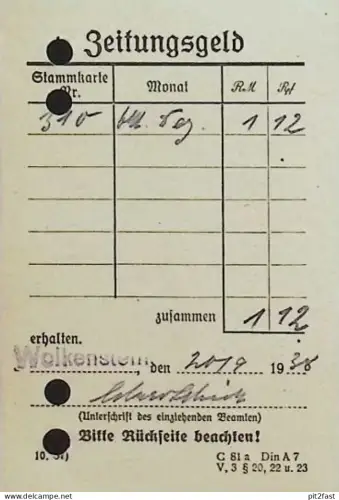 Zeitungsgeld
Stammkarte Nr. Monat RM Rpf
310 1 12
zusammen 1 12
erhalten.
Wolkenstein, den 19 38
(Unterschrift des einziehenden Beamten)
Bitte Rückseite beachten!
10. 37) C 81 a Din A 7
V, 3 § 20, 22 u. 23
pit2fast